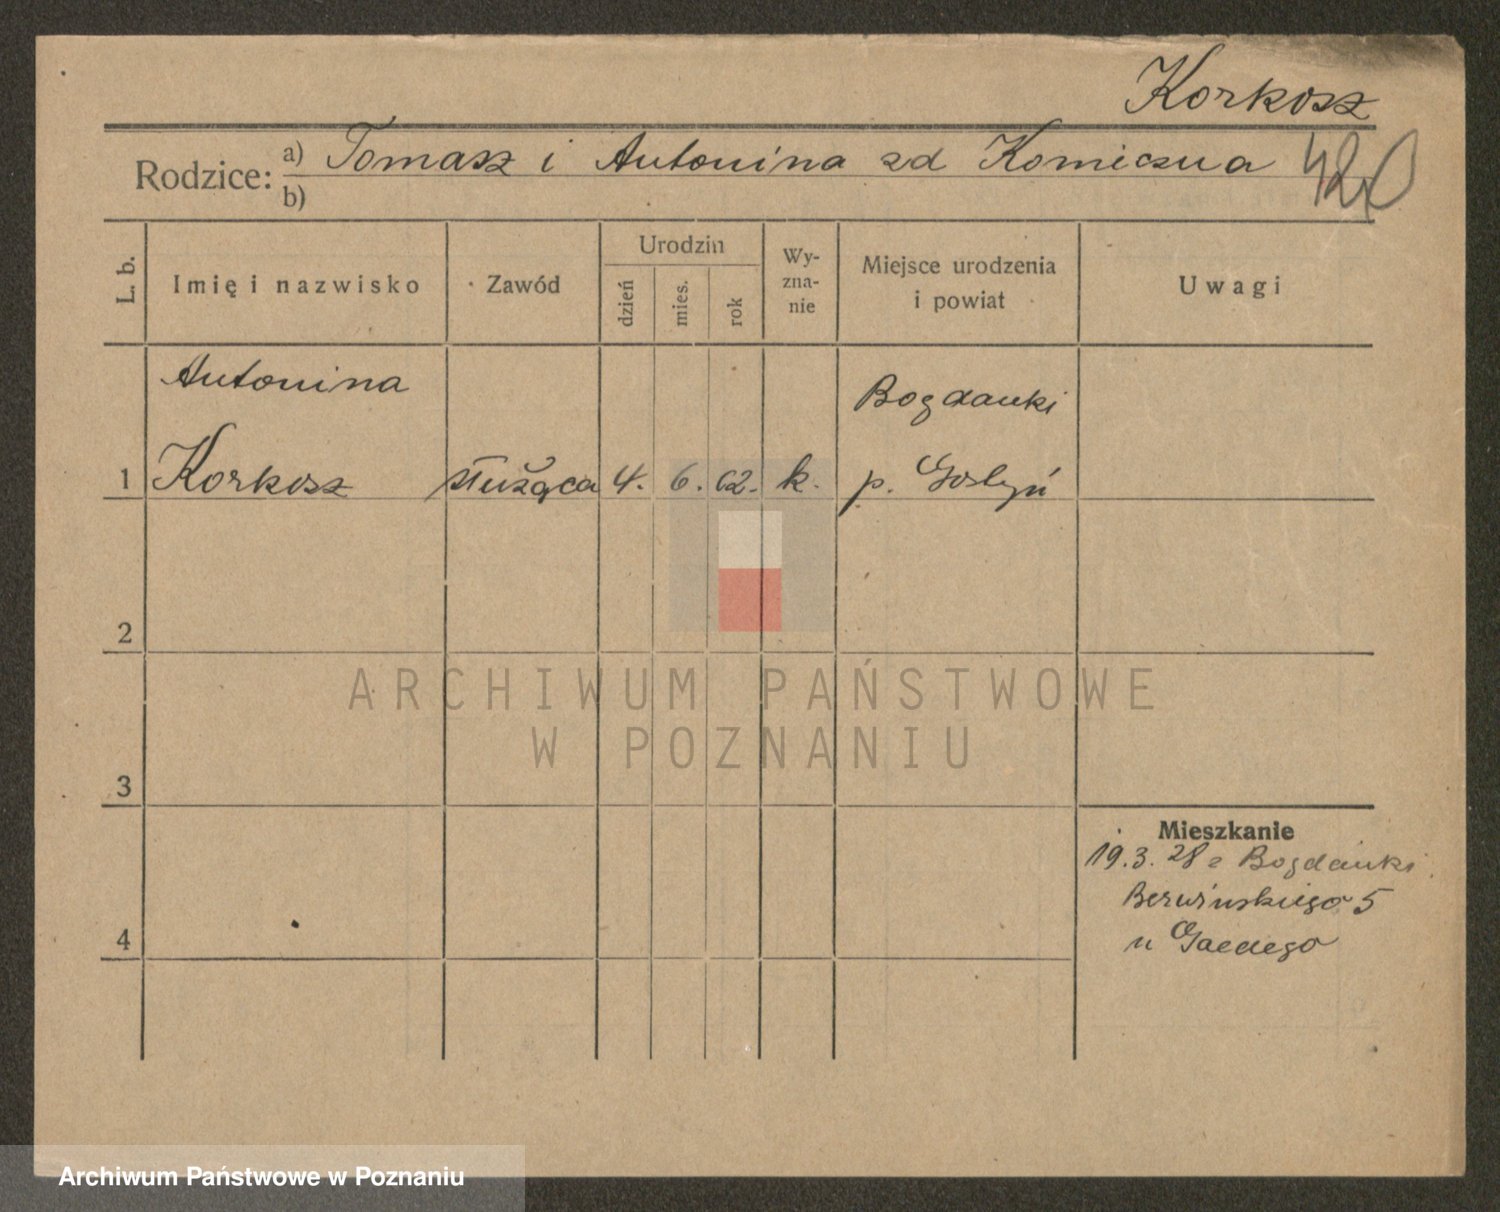 Korkosz
Rodzice: a) Tomasz i Antonina zd Komiczna 420
b)
L. b. Imię i nazwisko Zawód Urodzin dzień mies. rok Wy-zna-nie Miejsce urodzenia i powiat Uwagi
Antonina Bogdanki
1 Korkosz służąca 4. 6. 02. k. p. Gostyń
2
3
4
Mieszkanie
19.3.28 z Bogdanki
Berwińskiego 5
u Gaedego
ARCHIWUM PAŃSTWOWE
W POZNANIU
Archiwum Państwowe w Poznaniu